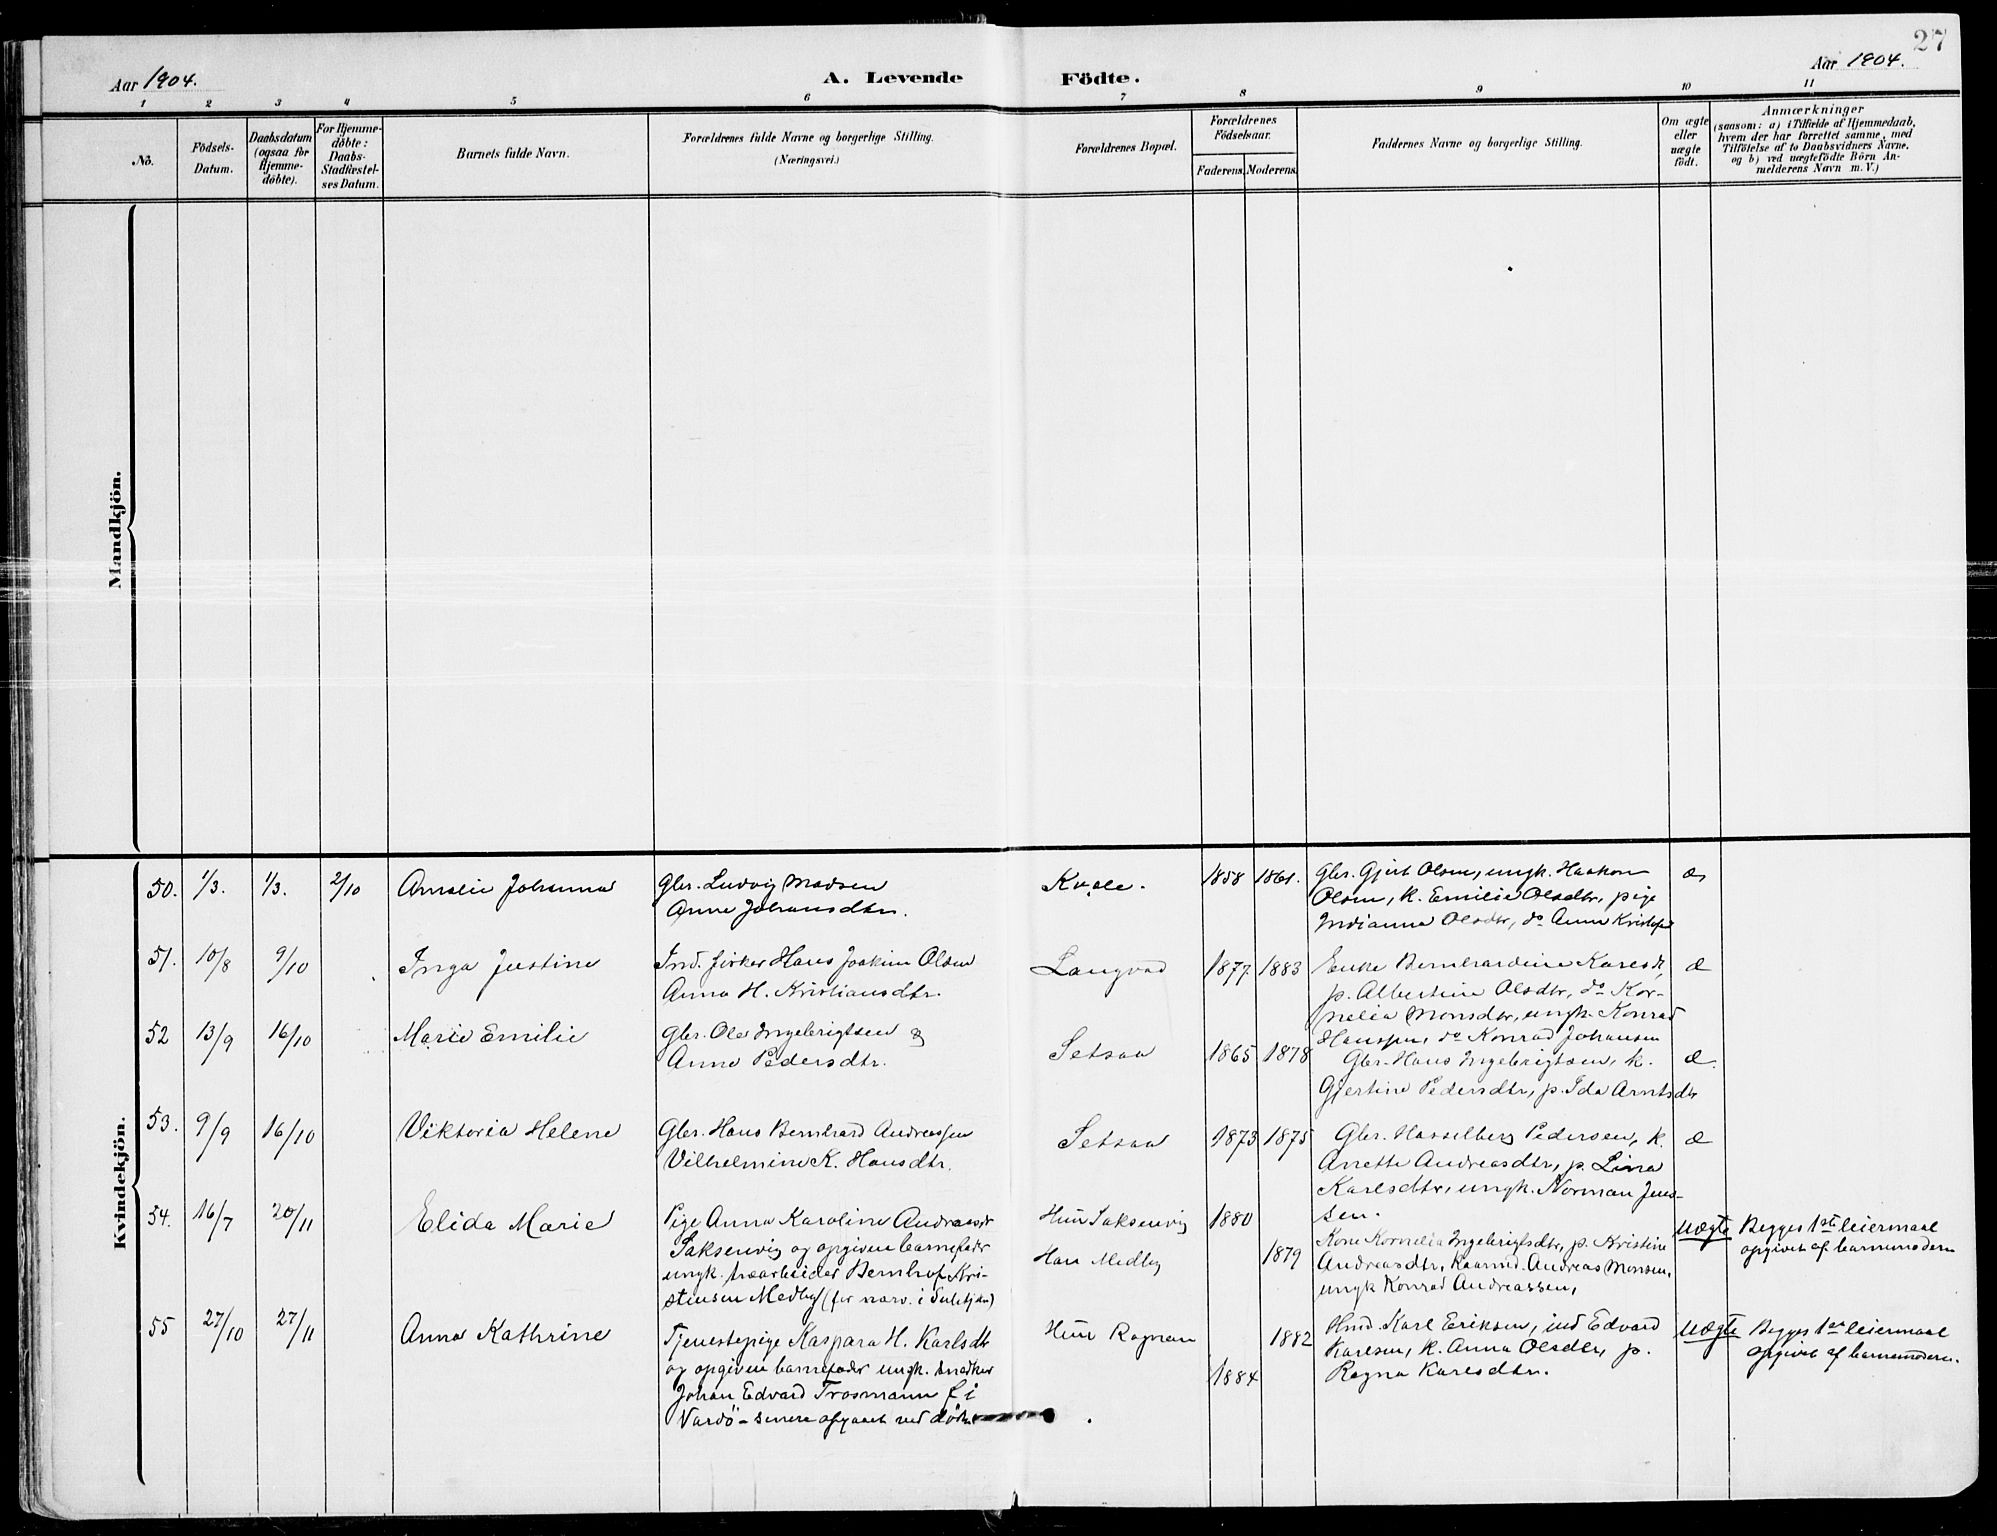 27
Aar 1904.
A. Levende Födte.
Aar 1904.
1 2 3 4 5 6 7 8 9 10 11
No.
Födsels-
Datum.
Daabsdatum
(ogsaa for
Hjemme-
döbte).
For Hjemme-
döbte:
Daabs-
Stadfæstel-
ses Datum.
Barnets fulde Navn.
Forældrenes fulde Navne og borgerlige Stilling.
(Næringsvei.)
Forældrenes Bopæl.
Forældrenes
Födselsaar.
Faderens. Moderens.
Faddernes Navne og borgerlige Stilling.
Om ægte
eller
uægte
födt.
Anmærkninger
(saasom: a) i Tilfælde af Hjemmedaab,
hvem der har forrettet samme, med
Tilföielse af to Daabsvidners Navne,
og b) ved uægtefödte Börn An-
melderens Navn m. V.)
Mandkjön.
Kvindekjön.
50. 1/3. 1/3. 2/10 Amalie Johanna
Gbr. Ludvig Madsen
Anne Johansdtr.
Kvæle. 1858 1861.
Gbr. Gjert Olsen, ungk. Haakon
Olsen, k. Emilie Olsdtr, pige
Indianna Olsdtr, do Anna Kristofsd
æ
51. 10/8 9/10 Inga Justine
Ind. fisker Hans Joakim Olsen
Anna H. Kristiansdtr.
Langvad 1877. 1883
Enke Bernhardine Karlsdtr,
p. Albertine Olsdtr, do Kor-
nelia Monsdtr, ungk. Konrad
Hanssen, do Konrad Johansen
æ
52 13/9 16/10 Marie Emilie
Gbr. Ole Ingebrigtsen &
Anne Pedersdtr.
Setsaa 1865 1878
Gbr. Hans Ingebrigtsen, k.
Gjertine Pedersdtr, p. Ida Arntsdtr
æ.
53. 9/9 16/10 Viktoria Helene
Gbr. Hans Bernhard Andreassen
Vilhelmine K. Hansdtr.
Setsaa 1873 1875
Gbr. Hasselberg Pedersen, k.
Anette Andreasdtr, p. Lina
Karlsdtr, ungk. Norman Jens-
sen.
æ
54. 16/7 20/11 Elida Marie
Pige Anna Karoline Andreasdtr
Saksenvig og opgiven barnefader
ungk. træarbeider Bernhof Kri-
stensen Medby (for nærv. i Sulitjelma)
Hun Saksenvig
Han Medby
1880
1879
Kone Kornelia Ingebrigtsdtr, p. Kristine
Andreasdtr, Kaarmd. Andreas Monsen,
ungk Konrad Andreassen,
Uægte
Begges 1ste leiermaal
opgivet af barnemoderen
55 27/10 27/11 Anna Kathrine
Tjenestepige Kaspara H. Karlsdtr
og opgiven barnefader ungk. snedker
Johan Edvard Trosmann f i
Vardö – senere afgaaet ved döden
Hun Rognan
1882
1884
Hmd. Karl Eriksen, ind Edvard
Karlsen, k. Anna Olsdtr, p.
Ragna Karlsdtr.
Uægte
Begges 1ste leiermaal
opgivet af barnemoderen.